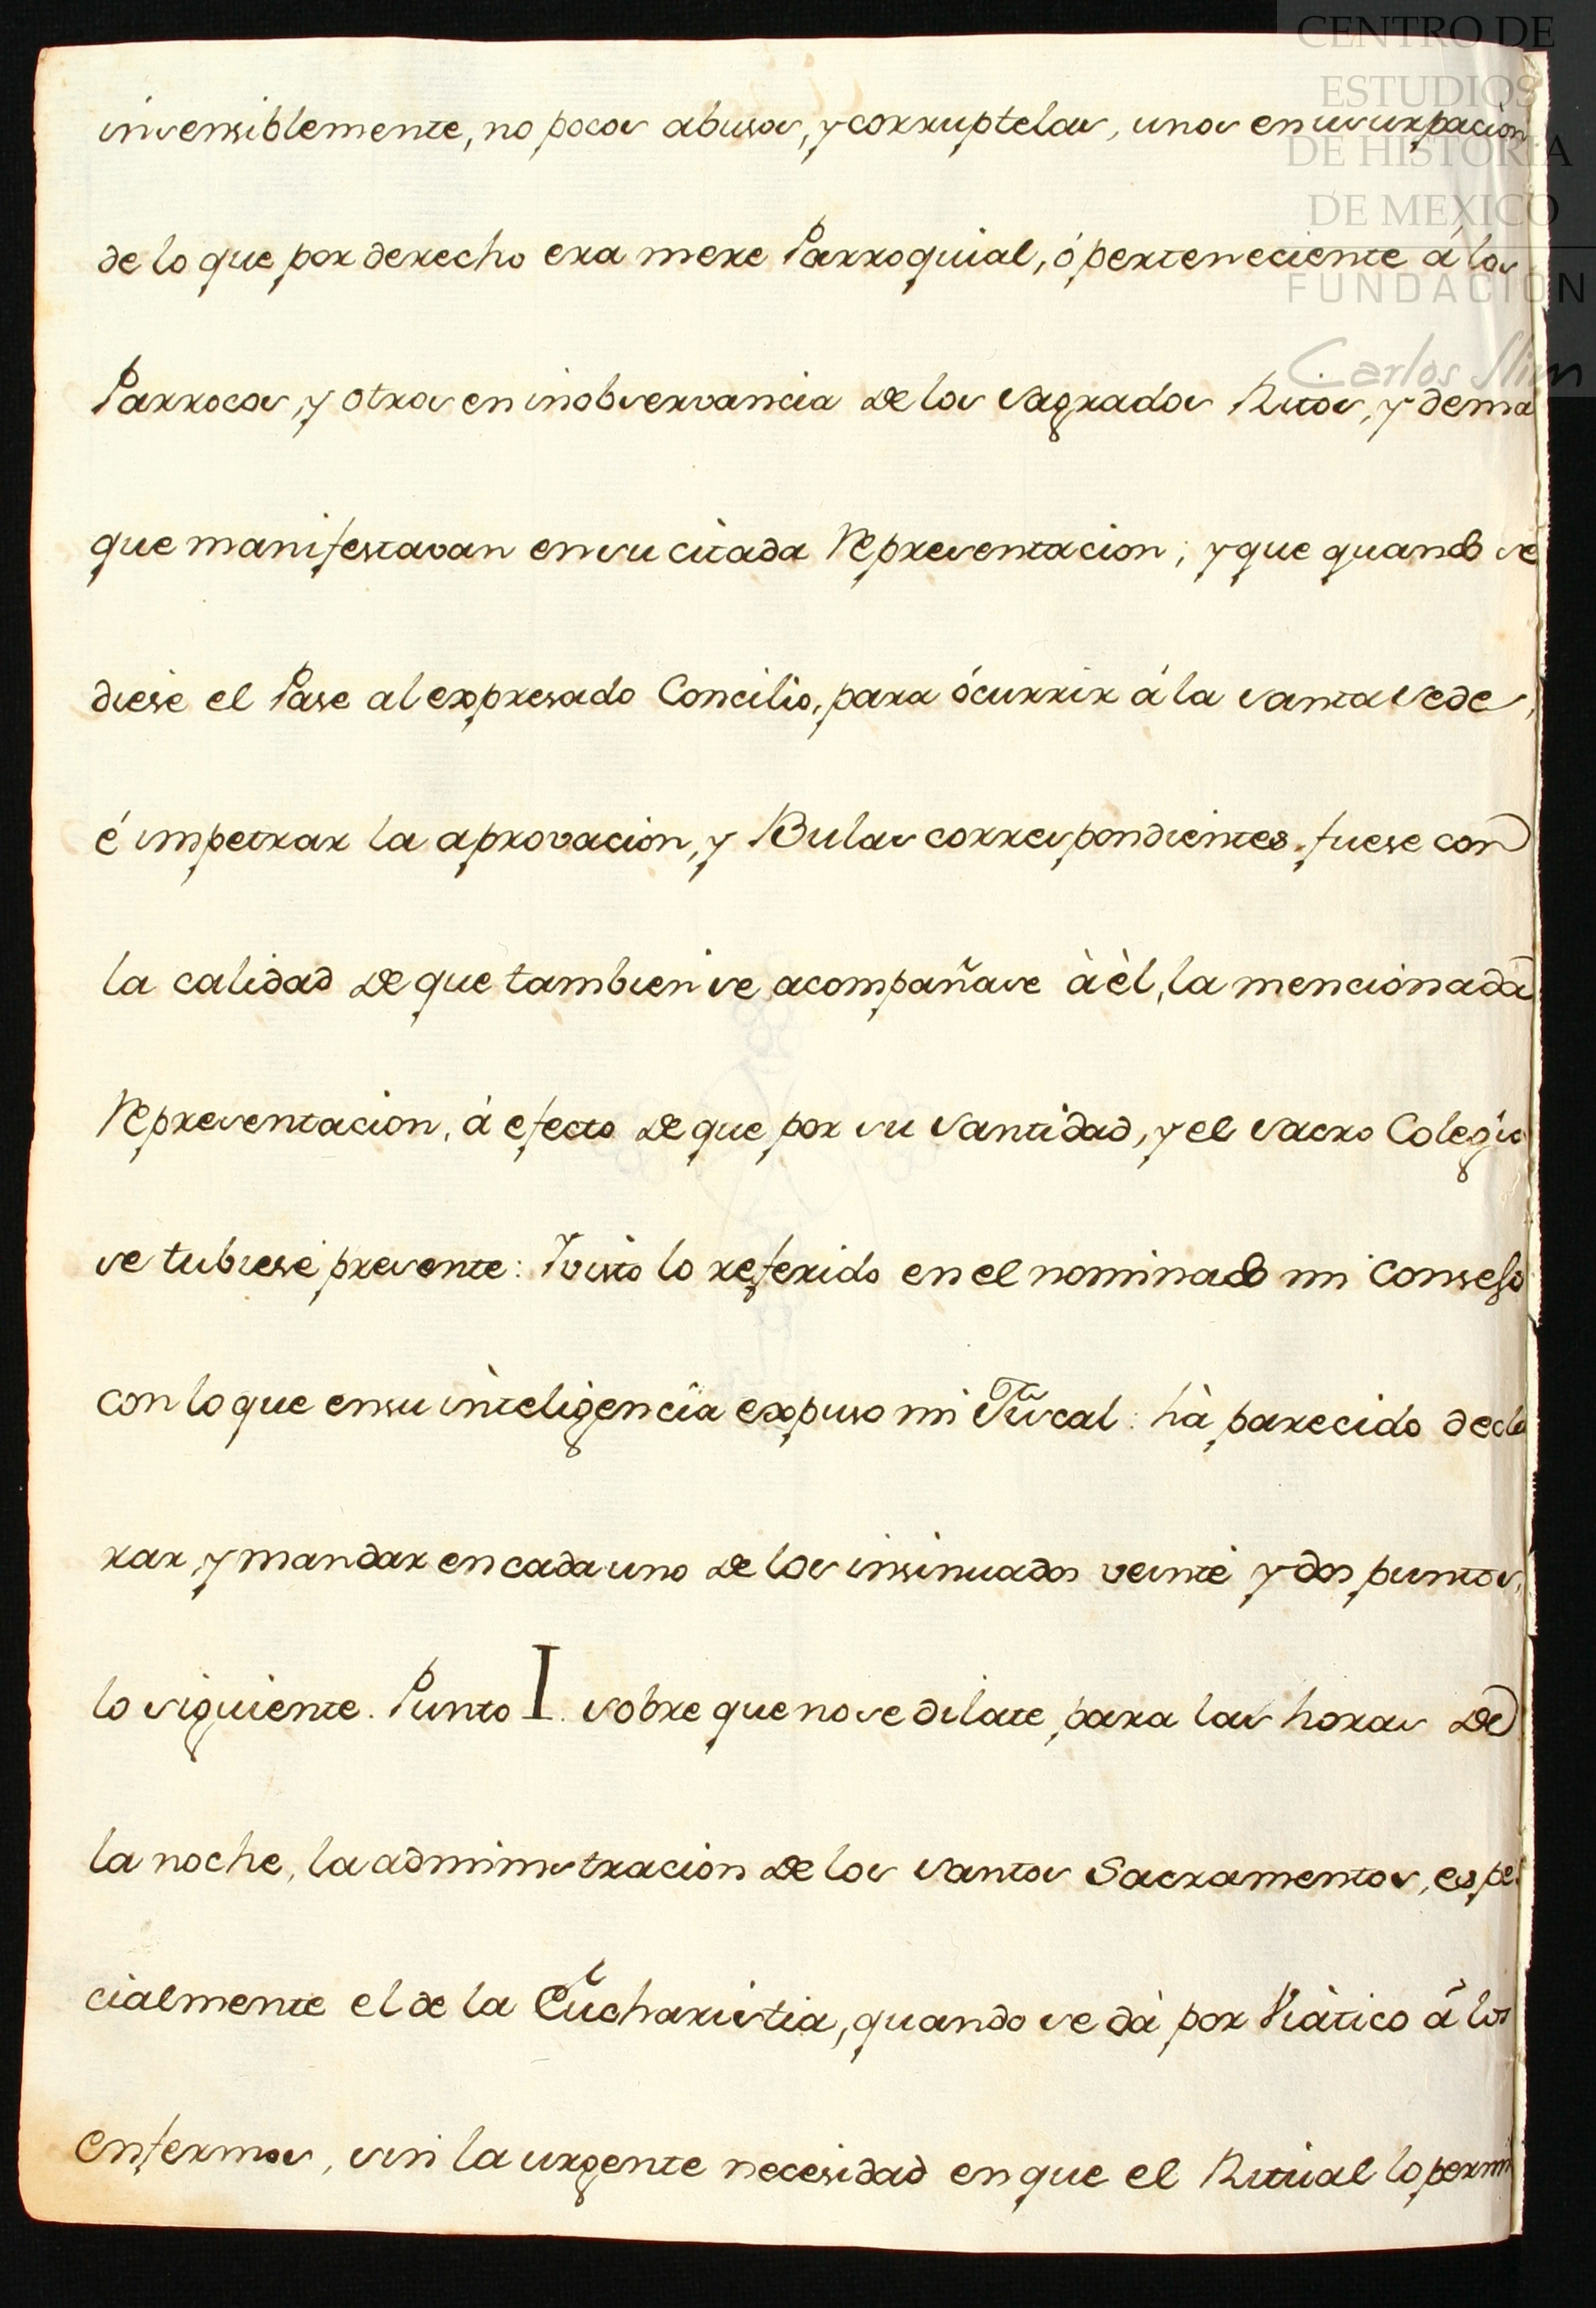 insensiblemente, no pocos abusos, y corruptelas, unos en usurpación
de lo que por derecho era mere Parroquial, ó perteneciente á los
Parrocos, y otros en inobservancia de los sagrados Ritos, y demas
que manifestavan en su citada Representacion; y que quando se
diese el Pase al expresado Concilio, para ócurrir á la santa sede,
é impetrar la aprovacion, y Bulas correspondientes, fuese con
la calidad de que tambien se acompañase à èl, la mencionada
Representacion, á efecto de que por su Santidad, y el sacro Colegio
se tubiese presente: Y visto lo referido en el nominado mi Consejo
con lo que en su inteligencia expuso mi Fiscal: hà parecido decla
rar, y mandar en cada uno de los insinuados veinte y dos puntos,
lo siguiente. Punto I. sobre que no se dilate para las horas de
la noche, la administracion de los santos Sacramentos, espe
cialmente el de la Eucharistia, quando se dà por Viàtico á los
enfermos, sin la urgente necesidad en que el Ritual lo permi
CENTRO DE
ESTUDIOS
DE HISTORIA
DE MEXICO
FUNDACIÓN
Carlos Slim